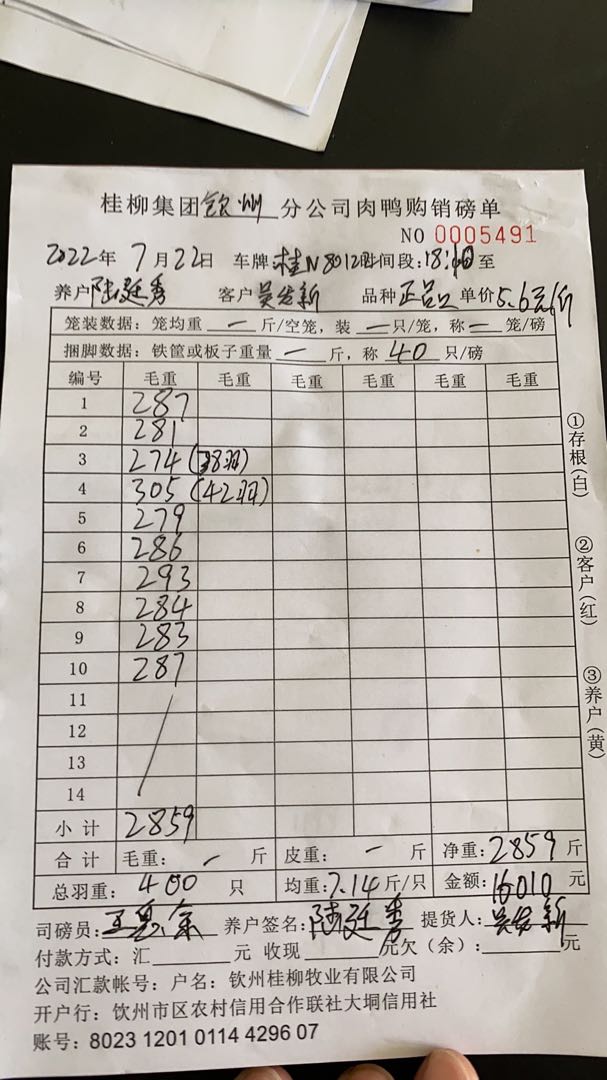 桂柳集团钦州分公司肉鸭购销磅单
NO 0005491
2022年7月22日 车牌桂N8012 时间段:18:10至
养户陆廷秀 客户吴发新 品种正品 单价5.6元/斤
笼装数据：笼均重 — 斤/空笼，装 — 只/笼，称 — 笼/磅
捆脚数据：铁筐或板子重量 — 斤，称 40 只/磅
编号 毛重 毛重 毛重 毛重 毛重 毛重
1 287
2 281
3 274 (38羽)
4 305 (42羽)
5 279
6 286
7 293
8 284
9 283
10 287
11
12
13
14
小计 2859
合计 毛重: — 斤 皮重: — 斤 净重: 2859 斤
总羽重: 400 只 均重: 7.14 斤/只 金额: 16010 元
司磅员: 养户签名: 陆廷秀 提货人: 吴发新
付款方式：汇 元 收现 元欠（余）: 元
公司汇款帐号：户名：钦州桂柳牧业有限公司
开户行：钦州市区农村信用合作联社大垌信用社
账号：8023 1201 0114 4296 07
①存根(白)
②客户(红)
③养户(黄)